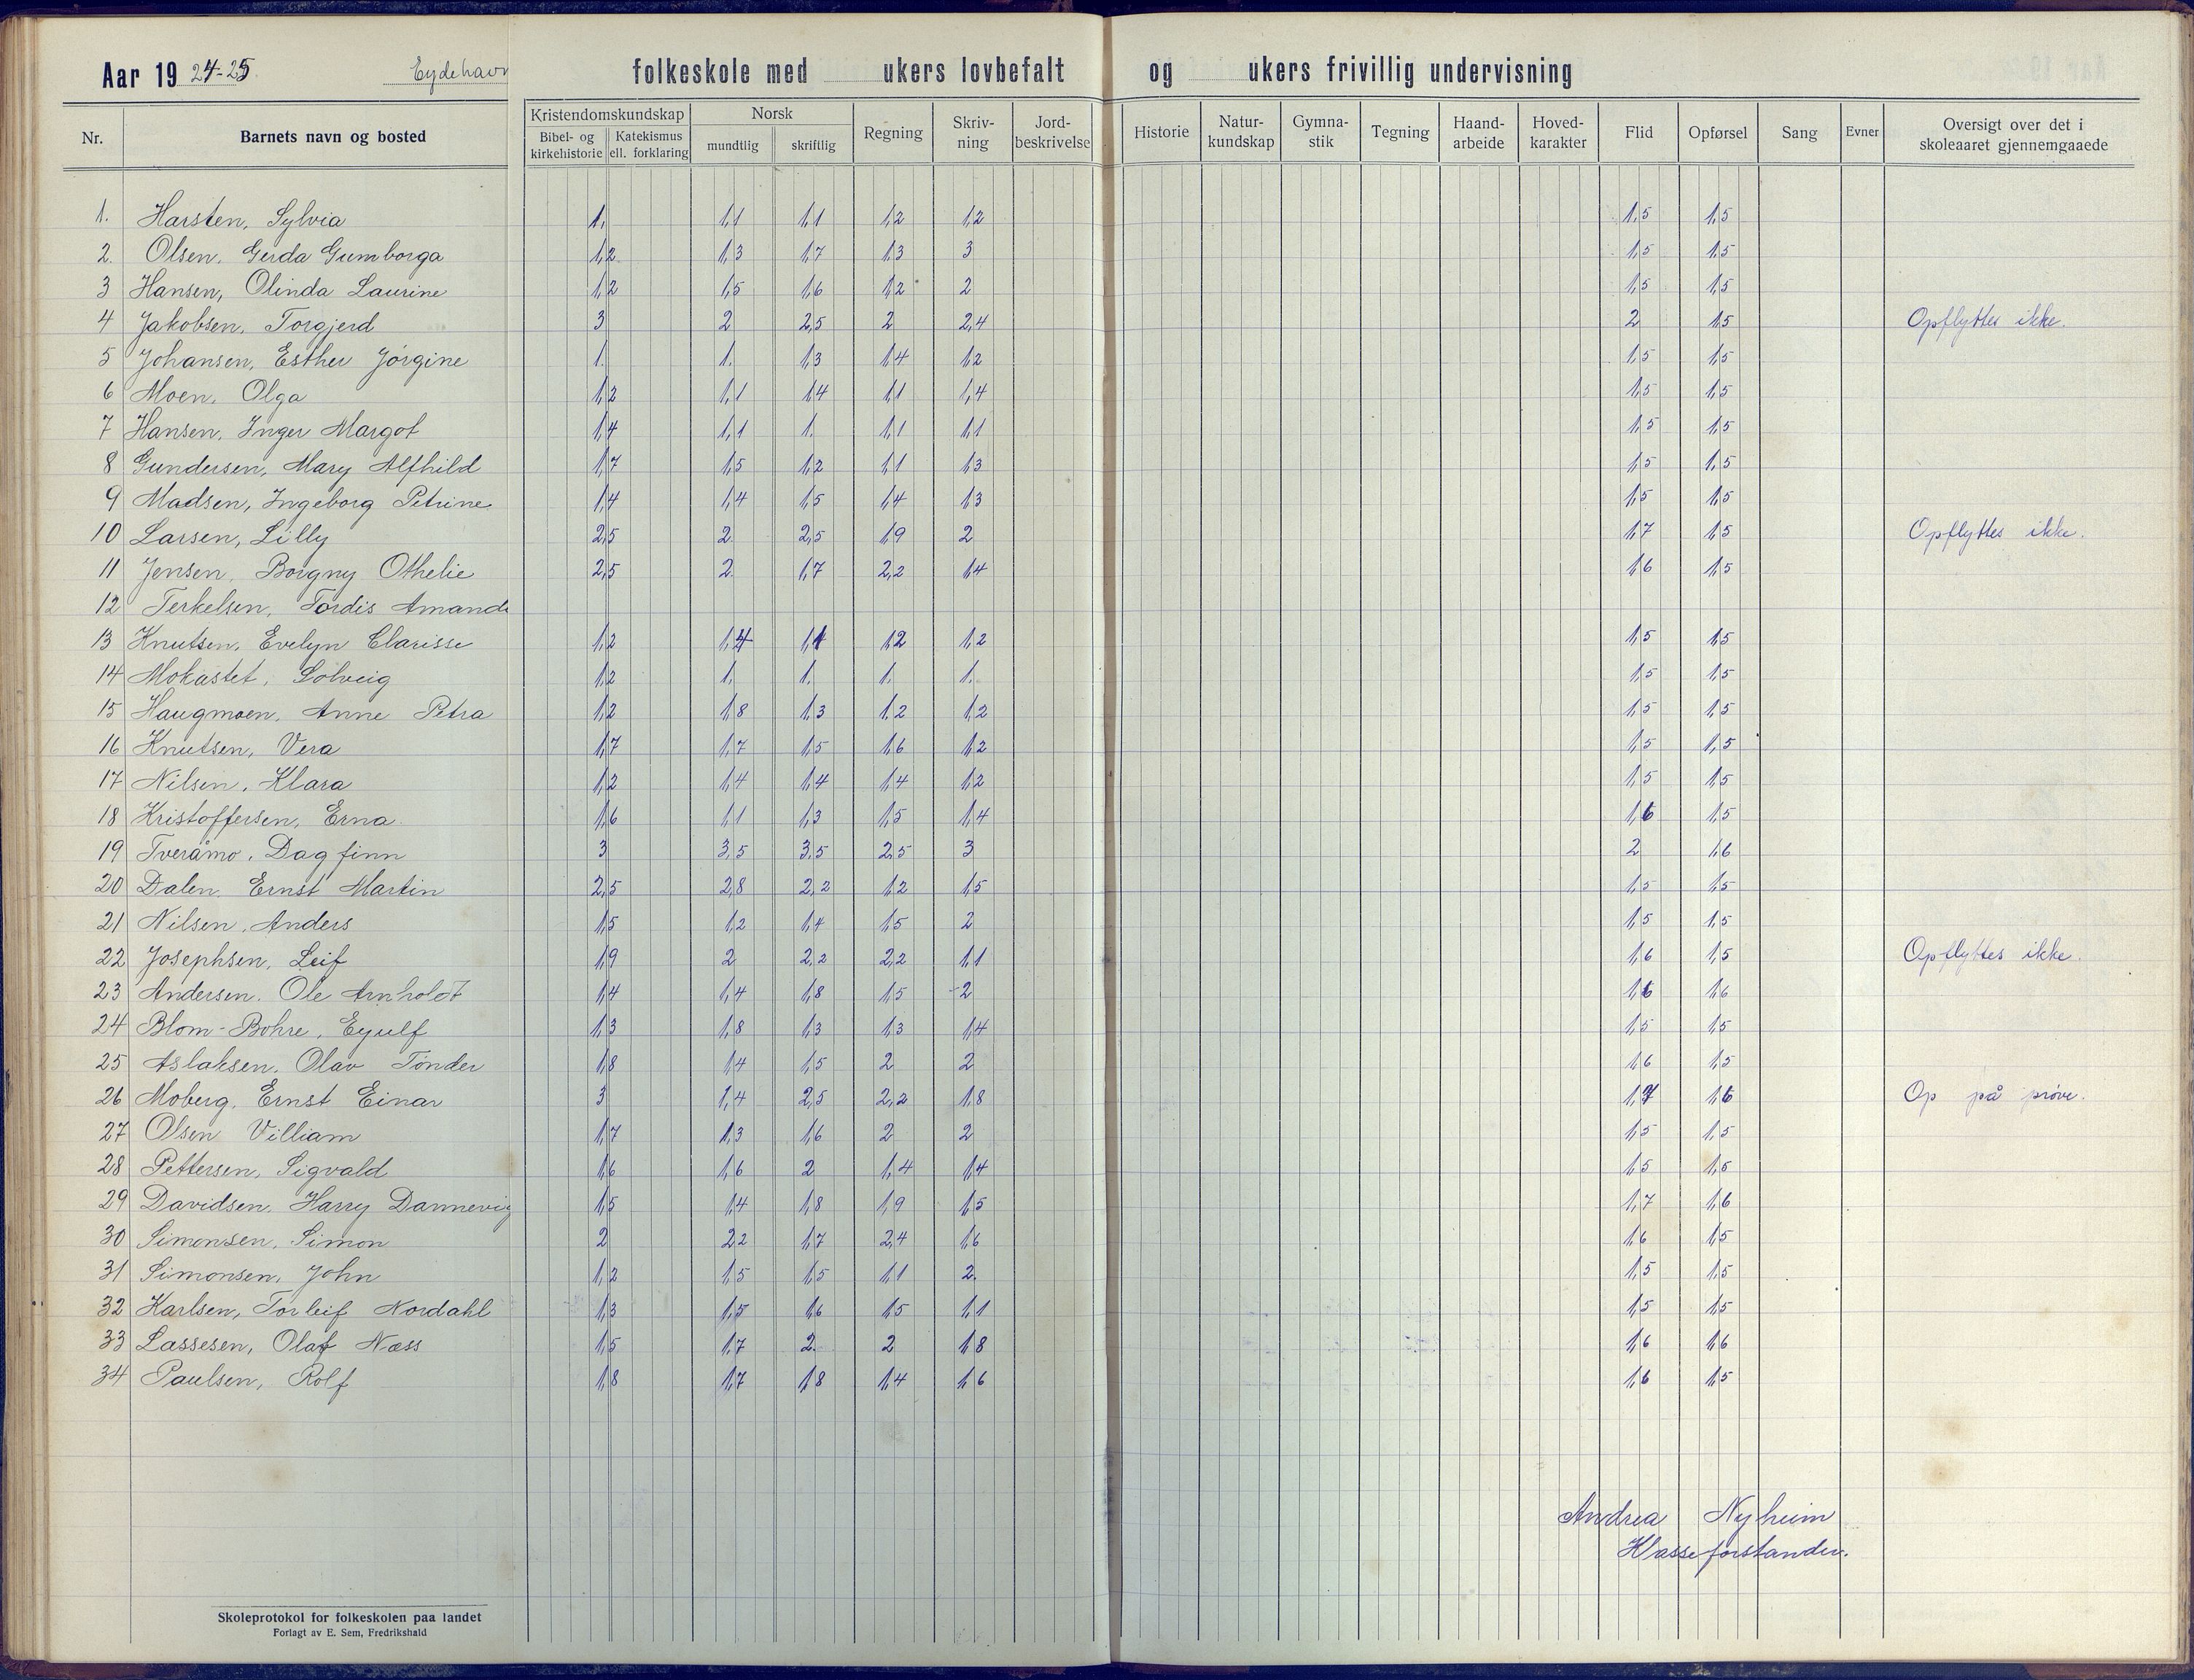 Aar 1924-25. Eydehavn folkeskole med ukers lovbefalt og ukers frivillig undervisning
Nr. Barnets navn og bosted Kristendomskundskap Bibel- og kirkehistorie Katekismus ell. forklaring Norsk mundtlig skriftlig Regning Skriv-ning Jord-beskrivelse Historie Natur-kundskap Gymna-stik Tegning Haand-arbeide Hoved-karakter Flid Opførsel Sang Evner Oversigt over det i skoleaaret gjennemgaaede
1. Harsten, Sylvia 1, 1,1 1,1 1,2 1,2 1,5 1,5
2. Olsen, Gerda Gumborga 1,2 1,3 1,7 1,3 3 1,5 1,5
3 Hansen, Olinda Laurine 1,2 1,5 1,6 1,2 2 1,5 1,5
4 Jakobsen, Torgjerd 3 2 2,5 2 2,4 2 1,5 Opflyttes ikke.
5 Johansen, Esther Jørgine 1. 1. 1,3 1,4 1,2 1,5 1,5
6 Moen, Olga 1,2 1,1 1,4 1,1 1,4 1,5 1,5
7 Hansen, Inger Margot 1,4 1,1 1. 1,1 1,1 1,5 1,5
8 Gundersen, Mary Alfhild 1,7 1,5 1,2 1,1 1,3 1,5 1,5
9 Madsen, Ingeborg Petrine 1,4 1,4 1,5 1,4 1,3 1,5 1,5
10 Larsen, Lilly 2,5 2. 2,5 1,9 2 1,7 1,5 Opflyttes ikke.
11 Jensen, Borgny Othelie 2,5 2. 1,7 2,2 1,4 1,6 1,5
12 Terkelsen, Tordis Amanda
13 Knutsen, Evelyn Clarisse 1,2 1,4 1,1 1,2 1,2 1,5 1,5
14 Mokastet, Solveig 1,2 1. 1. 1. 1. 1,5 1,5
15 Haugmoen, Anne Petra 1,2 1,8 1,3 1,2 1,2 1,5 1,5
16 Knutsen, Vera 1,7 1,7 1,5 1,6 1,2 1,5 1,5
17 Nilsen, Klara 1,2 1,4 1,4 1,4 1,2 1,5 1,5
18 Kristoffersen, Erna 1,6 1,1 1,3 1,5 1,4 1,6 1,5
19 Tveråmo, Dagfinn 3 3,5 3,5 2,5 3 2 1,6
20 Dalen, Ernst Martin 2,5 2,8 2,2 1,2 1,5 1,5 1,5
21 Nilsen, Anders 1,5 1,2 1,4 1,5 2 1,5 1,5
22 Josephsen, Leif 1,9 2 2,2 2,2 1,1 1,6 1,5 Opflyttes ikke.
23 Andersen, Ole Arnholdt 1,4 1,4 1,8 1,5 2 1,6 1,6
24 Blom-Bohre, Eyulf 1,3 1,8 1,3 1,3 1,4 1,5 1,5
25 Aslaksen, Olav Tønder 1,8 1,4 1,5 2 2 1,6 1,5
26 Moberg, Ernst Einar 3 1,4 2,5 2,2 1,8 1,7 1,6 Op på prøve.
27 Olsen William 1,7 1,3 1,6 2 2 1,5 1,5
28 Pettersen, Sigvald 1,6 1,6 2 1,4 1,4 1,5 1,5
29 Davidsen, Harry Dannevig 1,5 1,4 1,8 1,9 1,5 1,7 1,6
30 Simonsen, Simon 2 2,2 1,7 2,4 1,6 1,6 1,5
31 Simonsen, John 1,2 1,5 1,5 1,1 2. 1,5 1,5
32 Karlsen, Torleif Nordahl 1,3 1,5 1,6 1,5 1,1 1,5 1,5
33 Lassesen, Olaf Næss 1,5 1,7 2. 2 1,8 1,6 1,6
34 Paulsen, Rolf 1,8 1,7 1,8 1,4 1,6 1,6 1,5
Andrea Nyheim
Klasseforstander.
Skoleprotokol for folkeskolen paa landet
Forlagt av E. Sem, Fredrikshald